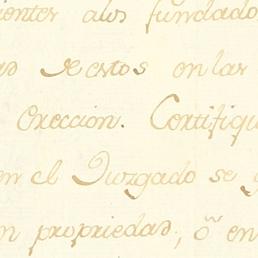 ientes alos fundado
as de estos en las
ereccion. Certifiqu
en el Juzgado se
n propriedad, ó en